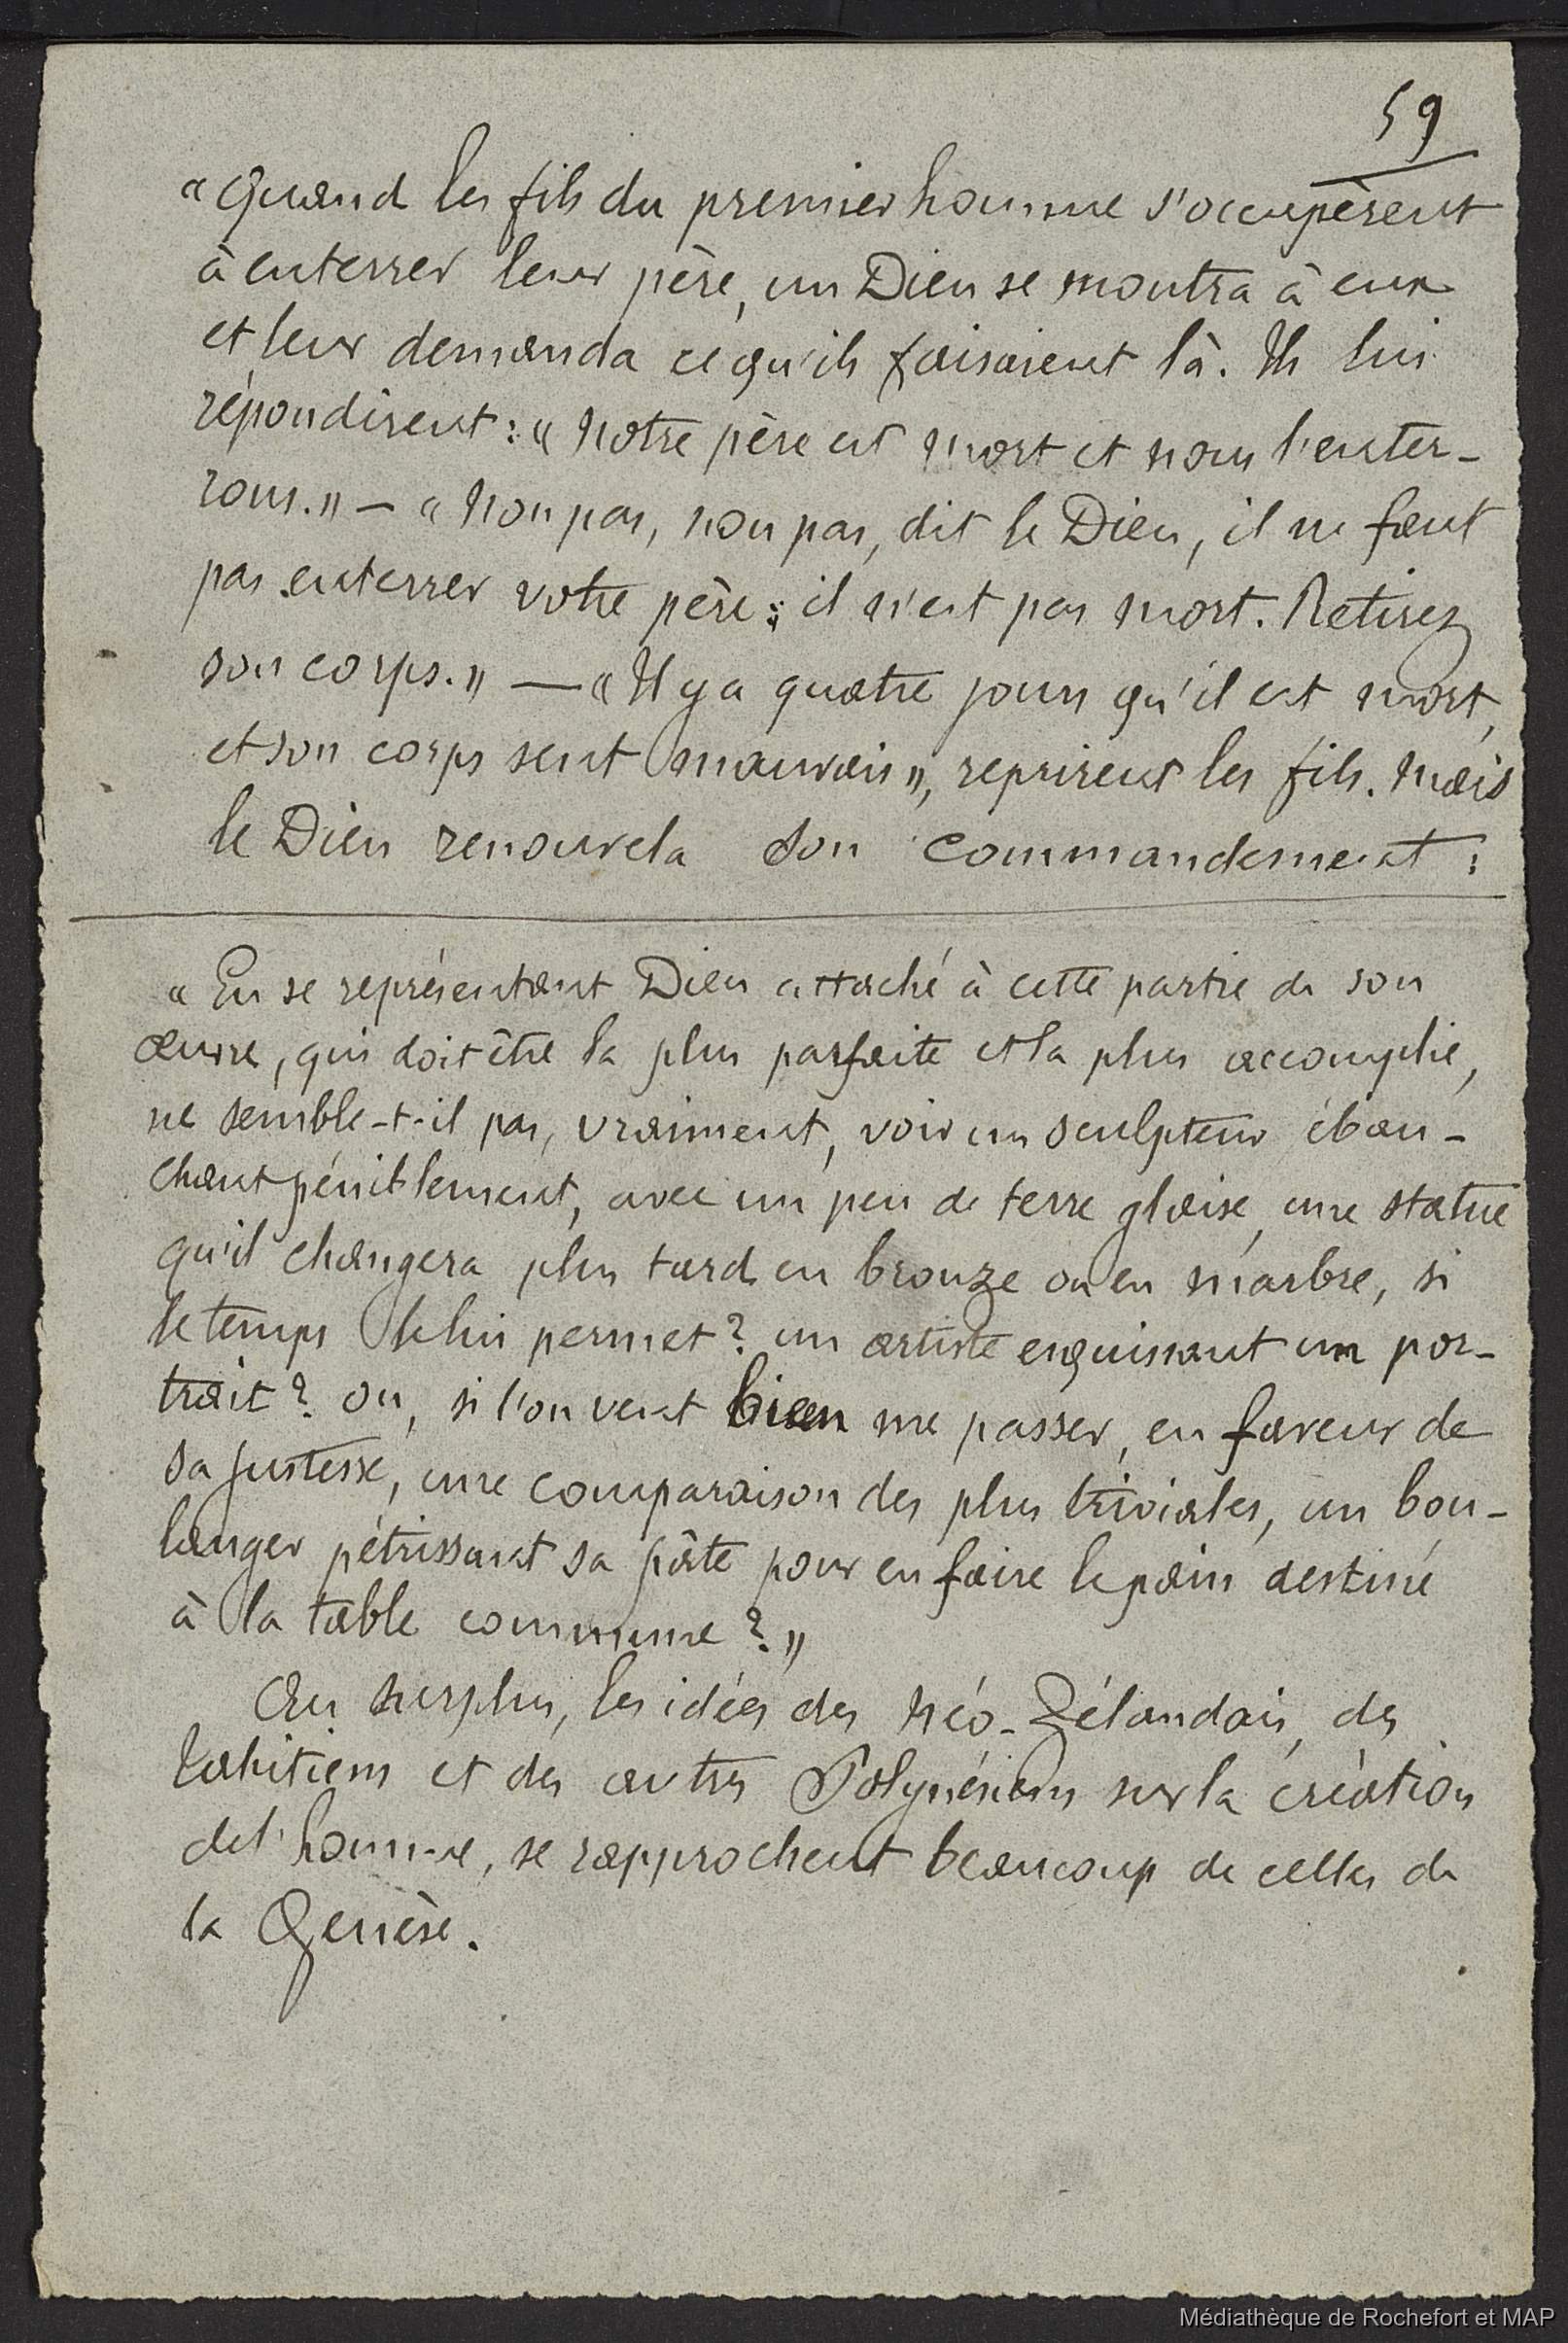 59
« Quand les fils du premier homme s'occupèrent
à enterrer leur père, un Dieu se montra à eux
et leur demanda ce qu'ils faisaient là. Ils lui
répondirent : « Notre père est mort et nous l'enter-
rons. » — « Non pas, non pas, dit le Dieu, il ne faut
pas enterrer votre père ; il n'est pas mort. Retirez
son corps. » — « Il y a quatre jours qu'il est mort,
et son corps sent mauvais », reprirent les fils. Mais
le Dieu renouvela son commandement :
« En se représentant Dieu attaché à cette partie de son
œuvre, qui doit être la plus parfaite et la plus accomplie,
ne semble-t-il pas, vraiment, voir un sculpteur ébau-
chant péniblement, avec un peu de terre glaise, une statue
qu'il changera plus tard en bronze ou en marbre, si
le temps le lui permet ? un artiste esquissant un por-
trait ? ou, si l'on veut bien me passer, en faveur de
sa justesse, une comparaison des plus triviales, un bou-
langer pétrissant sa pâte pour en faire le pain destiné
à la table commune ? »
Au surplus, les idées des Néo-Zélandais, des
Tahitiens et des autres Polynésiens sur la création
de l'homme, se rapprochent beaucoup de celles de
la Genèse.
Médiathèque de Rochefort et MAP